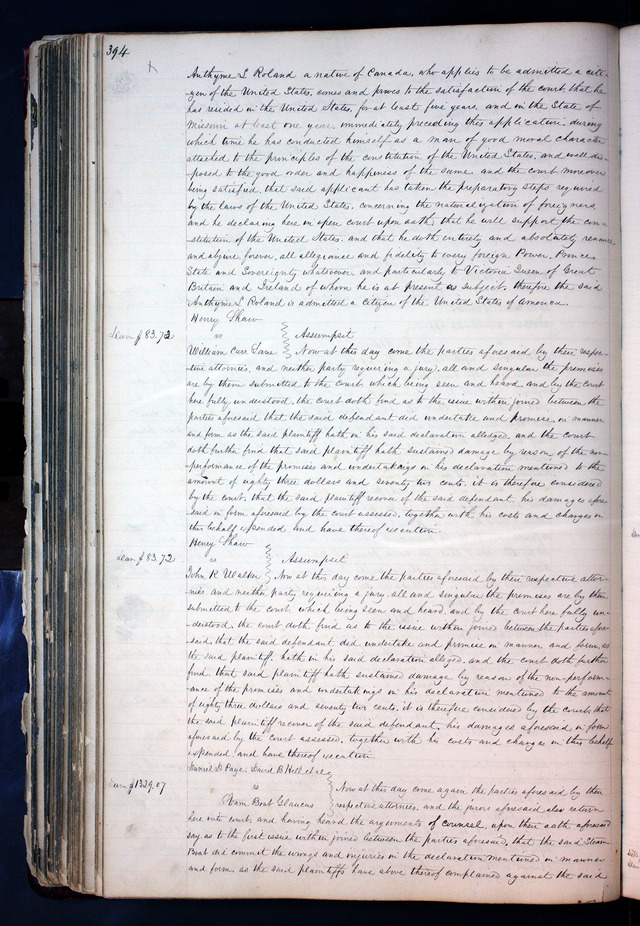 394
Anthyme S Roland a native of Canada, who applies to be admitted a citi-
zen of the United States, comes and proves to the satisfaction of the court that he
has resided in the United States, for at least five years, and in the State of
Missouri at least one year, immediately preceding this application, during
which time he has conducted himself as a man of good moral character
attached to the principles of the constitution of the United States, and well dis-
posed to the good order and happiness of the same, and the court moreover
being satisfied that said applicant has taken the preparatory steps required
by the laws of the United States, concerning the naturalization of foreigners,
and he declaring here in open court upon oath, that he will support the con-
stitution of the United States, and that he doth entirely and absolutely renounce
and abjure forever, all allegiance and fidelity to every foreign Power, Prince
State and Sovereignty whatsoever, and particularly to Victoria Queen of Great
Britain and Ireland of whom he is at present a subject, therefore the said
Anthyme S Roland is admitted a citizen of the United States of America.
Henry Shaw
Dam $83.72 vs Assumpsit
William Carr Lane Now at this day come the parties aforesaid by their respec-
tive attornies, and neither party requiring a jury, all and singular the premises
are by them submitted to the court, which being seen and heard, and by the court
here fully understood, the court doth find as to the issue within joined between the
parties aforesaid that the said defendant did undertake and promise in manner
and form as the said plaintiff hath in his said declaration alledged, and the court
doth further find that said plaintiff hath sustained damage by reason of the non-
performance of the promises and undertakings in his declaration mentioned to the
amount of eighty three dollars and seventy two cents, it is therefore considered
by the court, that the said plaintiff recover of the said defendant, his damages afore-
said in form aforesaid by the court assessed, together with his costs and charges in
this behalf expended and have thereof execution.
Henry Shaw
Dam $83.72 vs Assumpsit
John R Walker Now at this day come the parties aforesaid by their respective attor-
nies and neither party requiring a jury, all and singular the premises are by them
submitted to the court, which being seen and heard, and by the court here fully un-
derstood, the court doth find as to the issue within joined between the parties afore-
said that the said defendant did undertake and promise in manner and form, as
the said plaintiff hath in his said declaration alleged, and the court doth further
find, that said plaintiff hath sustained damage by reason of the non-perform-
ance of the promises and undertakings in his declaration mentioned to the amount
of eighty three dollars and seventy two cents, it is therefore considered by the court, that
the said plaintiff recover of the said defendant, his damages aforesaid in form
aforesaid by the court assessed, together with his costs and charges in this behalf
expended, and have thereof execution.
Daniel D Page, David B Hill et al
Dam $1329.07 vs Now at this day come again the parties aforesaid by their
Steam Boat Glaucus respective attornies, and the jurors aforesaid also return
here into court, and having heard the arguments of counsel, upon their oath aforesaid
say, as to the first issue within joined between the parties aforesaid, that the said Steam
Boat did commit the wrongs and injuries in the declaration mentioned in manner
and form, as the said plaintiffs have above thereof complained against the said